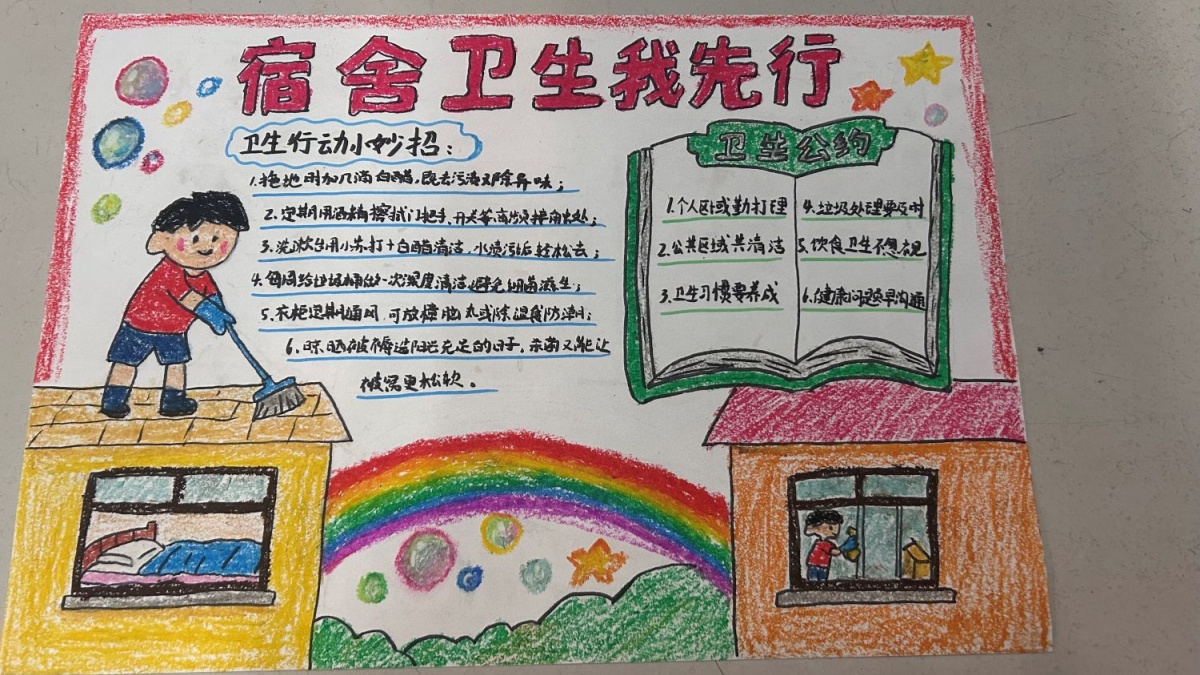 宿舍卫生我先行
卫生行动小妙招:
1.拖地时加几滴白醋,既去污渍又除异味;
2.定期用酒精擦拭门把手、开关等高频接触处;
3.洗漱台用小苏打+白醋清洁,水渍污垢轻松去;
4.每周给垃圾桶做一次深度清洁,避免细菌滋生;
5.衣柜定期通风,可放樟脑丸或除湿袋防潮;
6.晾晒被褥选阳光充足的日子,杀菌又能让
被窝更松软。
卫生公约
1.个人区域勤打理
2.公共区域共清洁
3.卫生习惯要养成
4.垃圾处理要及时
5.饮食卫生不忽视
6.健康问题早沟通